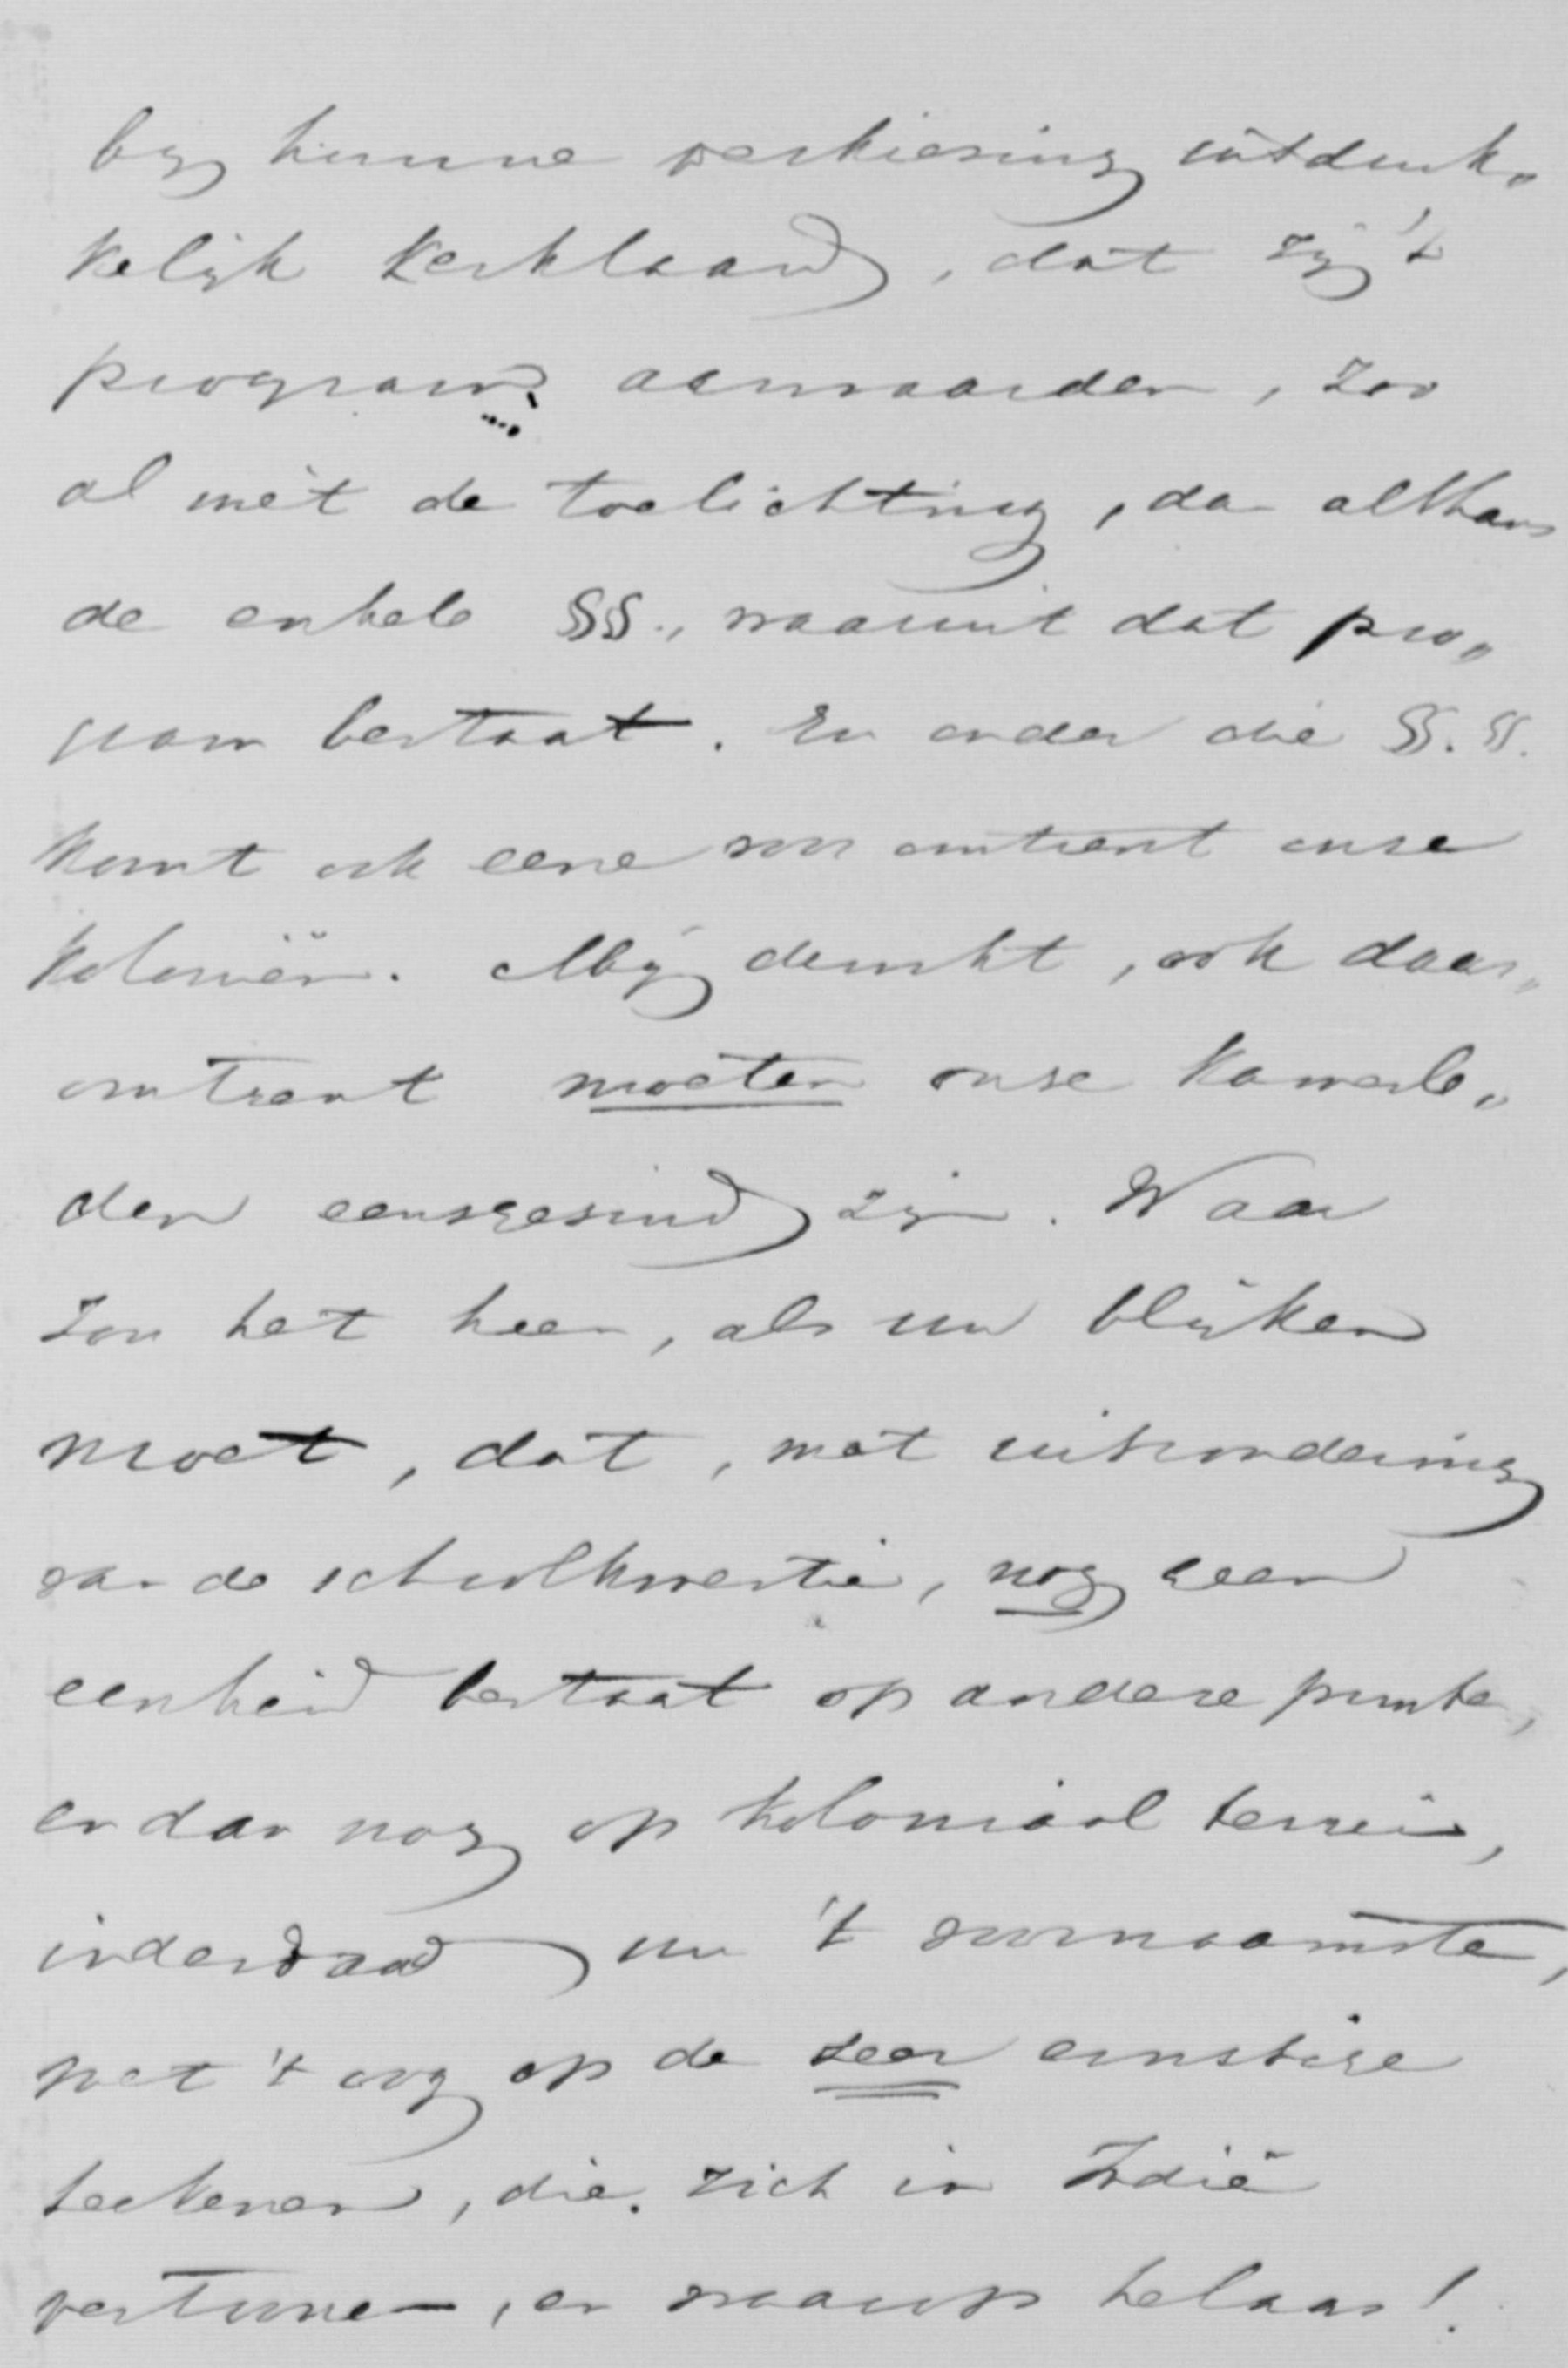 by hunne verkiesing uitdruk„
kelijk verklaard, dat zij 't
program aanvaarden, zoo
al niet de toelichting, dan althans
de enkele §§., waaruit dat pro„
gram bestaat. En onder die §§.§§.
komt ook eene voor omtrent onse
Koloniën. Mij dunkt, ook daar„
omtrent moeten onse Kamerle„
den eensgesind zijn. Waar
zou het heen, als nu blijken
moet, dat, met uitsondering
van de schoolkwestie, nog geen
eenheid bestaat op andere punten,
en dan nog op koloniaal terrein,
inderdaad nu 't voornaamste,
met 't oog op de zeer ernstige
teekenen, die zich in Indië
vertoonen, en waarop helaas!